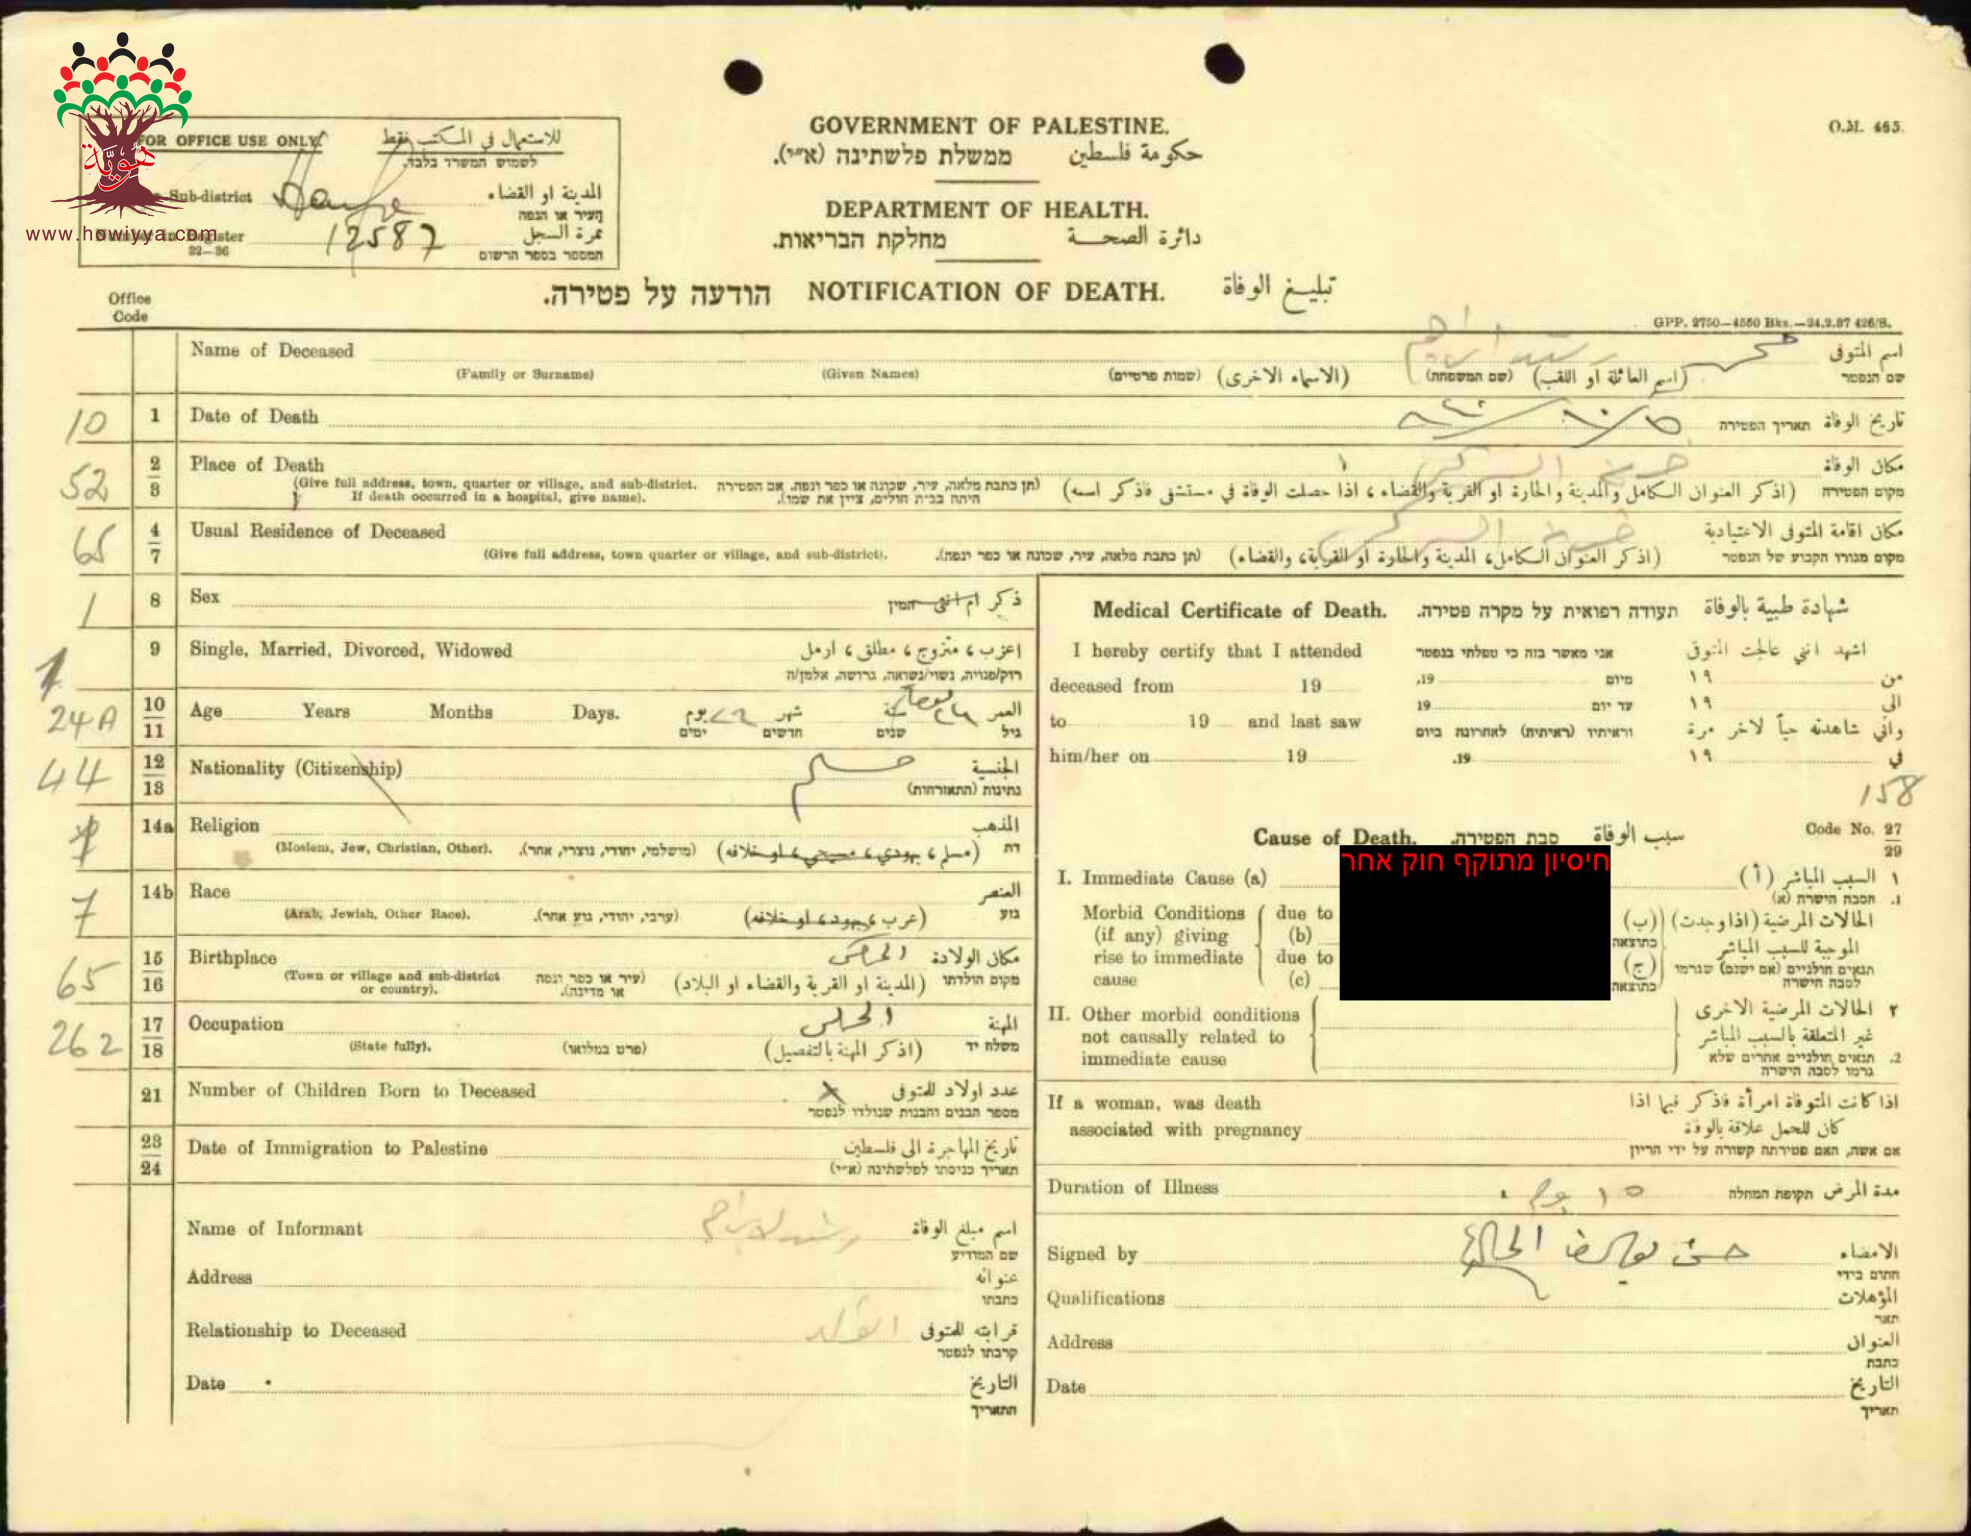 هوية
www.howiyya.com
FOR OFFICE USE ONLY. للاستعمال في المكتب فقط
לשמוש המשרד בלבד.
Sub-district المدينة او القضاء
העיר או הנפה
Register 12587 نمرة السجل
22—36 המספר בספר הרשום
GOVERNMENT OF PALESTINE.
ממשלת פלשתינה (א״י). حكومة فلسطين
DEPARTMENT OF HEALTH.
מחלקת הבריאות. دائرة الصحة
O.M. 465.
הודעה על פטירה. NOTIFICATION OF DEATH. تبليغ الوفاة
Office
Code
GPP. 2750—4550 Bks.—24.2.37 426/S.
Name of Deceased اسم المتوفى
(Family or Surname) (Given Names) (שמות פרטיים) (الاسماء الاخرى) (שם המשפחה) (اسم العائلة او اللقب) שם הנפטר
10 1 Date of Death תאריך הפטירה تاريخ الوفاة
52 2/3 Place of Death مكان الوفاة
(Give full address, town, quarter or village, and sub-district. (תן כתבת מלאה, עיר, שכונה או כפר ונפה. אם הפטירה (اذكر العنوان الكامل والمدينة والحارة او القرية والقضاء ، اذا حصلت الوفاة في مستشفى فاذكر اسمه) מקום הפטירה
If death occurred in a hospital, give name). היתה בבית חולים, ציין את שמו).
65 4/7 Usual Residence of Deceased مكان اقامة المتوفى الاعتيادية
(Give full address, town quarter or village, and sub-district). (תן כתבת מלאה, עיר, שכונה או כפר ונפה). (اذكر العنوان الكامل، المدينة والحارة او القرية، والقضاء) מקום מגורו הקבוע של הנפטר
1 8 Sex המין ذكر ام انثى
1 9 Single, Married, Divorced, Widowed اعزب ، متزوج ، مطلق ، ارمل
רוק/פנויה, נשוי/נשואה, גרושה, אלמן/ה
24A 10/11 Age Years Months Days. يوم شهر سنة العمر
ימים חדשים שנים גיל
44 12/13 Nationality (Citizenship) الجنسية
נתינות (התאזרחות)
14a Religion المذهب
(Moslem, Jew, Christian, Other). (מושלמי, יהודי, נוצרי, אחר). (مسلم ، يهودي ، مسيحي ، او خلافه) דת
7 14b Race العنصر
(Arab, Jewish, Other Race). (ערבי, יהודי, גזע אחר). (عرب ، يهود ، او خلافه) גזע
65 15/16 Birthplace مكان الولادة
(Town or village and sub-district (עיר או כפר ונפה (المدينة او القرية والقضاء او البلاد) מקום הולדתו
or country). או מדינה).
262 17/18 Occupation المهنة
(State fully). (פרט במלואו) (اذكر المهنة بالتفصيل) משלח יד
21 Number of Children Born to Deceased عدد اولاد للمتوفى
מספר הבנים והבנות שנולדו לנפטר
23/24 Date of Immigration to Palestine تاريخ المهاجرة الى فلسطين
תאריך כניסתו לפלשתינה (א״י)
Name of Informant اسم مبلغ الوفاة
שם המודיע
Address عنوانه
כתבתו
Relationship to Deceased قرابته للمتوفى
קרבתו לנפטר
Date التاريخ
התאריך
Medical Certificate of Death. תעודה רפואית על מקרה פטירה. شهادة طبية بالوفاة
I hereby certify that I attended אני מאשר בזה כי טפלתי בנפטר اشهد انني عالجت المتوفى
deceased from 19 מיום 19. من ١٩
to 19 and last saw עד יום 19 الى ١٩
וראיתיו (ראיתיה) לאחרונה ביום واني شاهدته حياً لاخر مرة
him/her on 19 19. في ١٩
158
Cause of Death. סבת הפטירה. سبب الوفاة Code No. 27/29
חיסיון מתוקף חוק אחר
I. Immediate Cause (a) ١ السبب المباشر (أ)
1. הסבה הישרה (א)
Morbid Conditions due to الحالات المرضية (اذا وجدت) (ب)
(if any) giving (b) כתוצאה الموجبة للسبب المباشر
rise to immediate due to (ج) תנאים חולניים (אם ישנם) שגרמו
cause (c) כתוצאה לסבה הישרה
II. Other morbid conditions ٢ الحالات المرضية الاخرى
not causally related to غير المتعلقة بالسبب المباشر
immediate cause 2. תנאים חולניים אחרים שלא
גרמו לסבה הישרה
If a woman, was death اذا كانت المتوفاة امرأة فاذكر فيما اذا
associated with pregnancy كان للحمل علاقة بالوفاة
אם אשה, האם פטירתה קשורה על ידי הריון
Duration of Illness ١٥ يوم תקופת המחלה مدة المرض
Signed by الامضاء
חתום בידי
Qualifications المؤهلات
תאר
Address العنوان
כתבת
Date التاريخ
תאריך